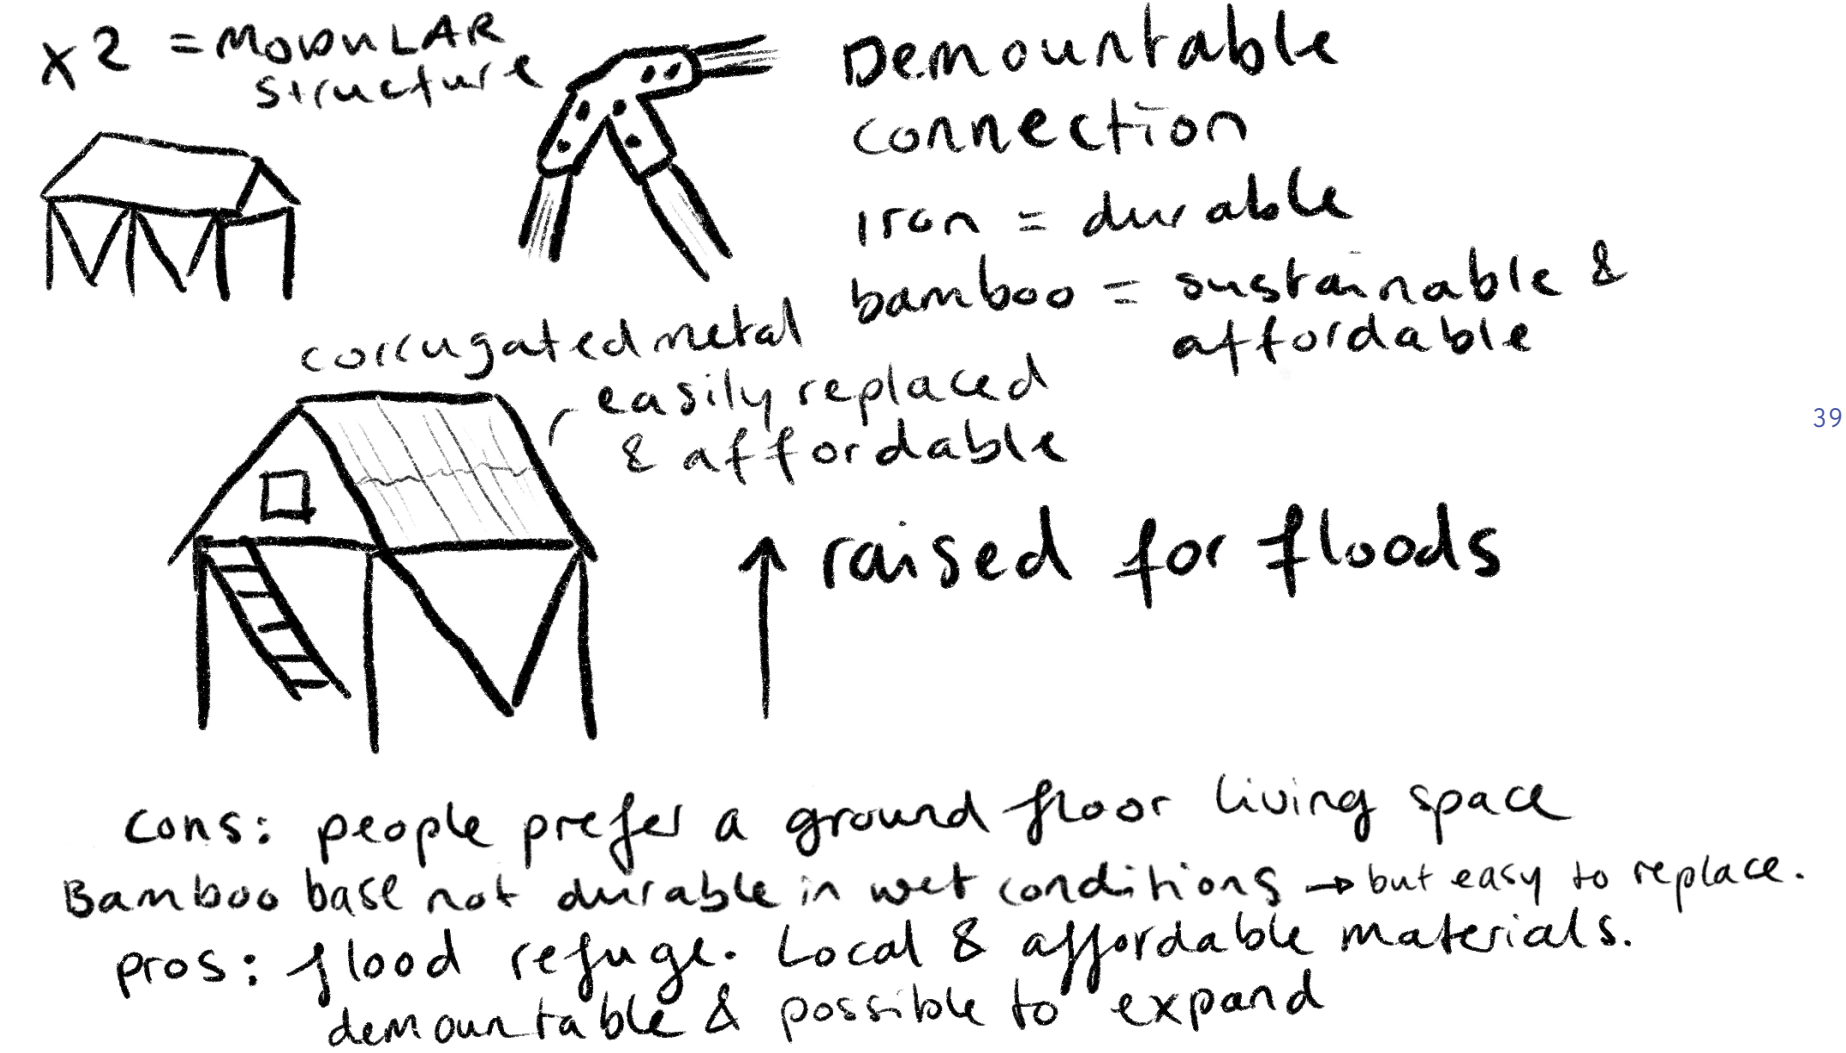 x2 = MODULAR
structure
Demountable
connection
iron = durable
bamboo = sustainable &
affordable
corrugated metal
easily replaced
& affordable
39
raised for floods
cons: people prefer a ground floor living space
Bamboo base not durable in wet conditions → but easy to replace.
pros: flood refuge. Local & affordable materials.
demountable & possible to expand